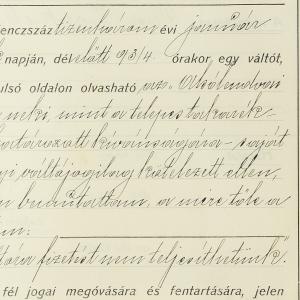 ienczszáz tizenhárom évi január
napján, délelőtt 9 3/4 órakor egy váltót,
ulsó oldalon olvasható az „Alsólendvai
neki, mint a telepes takarék-
határozott kívánságára – saját
yi váltójogilag kötelezett ellen,
n bemutattam, a mire tőle a
m:
tára fizetést nem teljesíthetünk."
fél jogai megóvására és fentartására, jelen